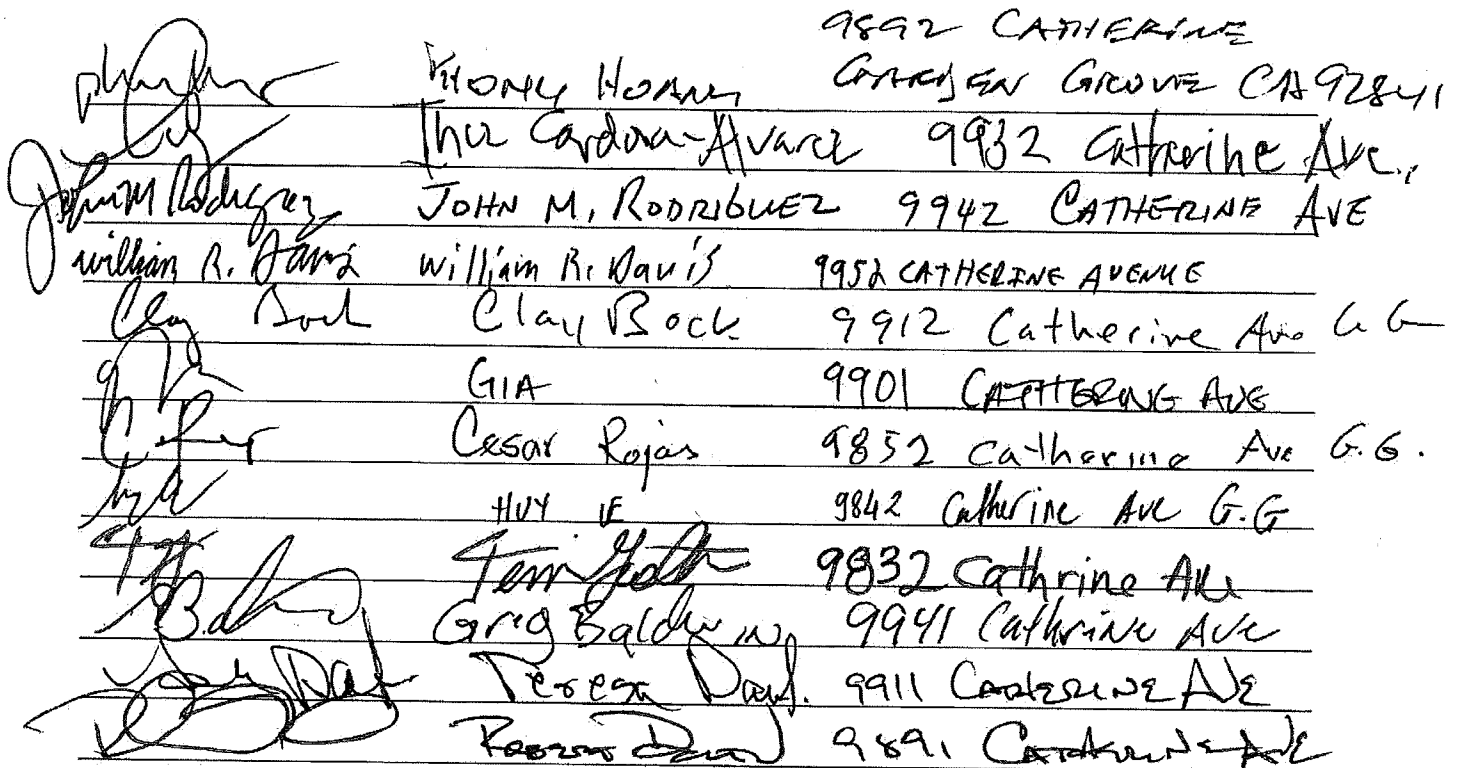 9892 CATHERINE
PHONG HOANG GARDEN GROVE CA 92841
Cardova-Alvarez 9932 Catherine Ave.,
John M Rodriguez JOHN M. RODRIGUEZ 9942 CATHERINE AVE
William R. Davis William R. Davis 9952 CATHERINE AVENUE
Clay Bock Clay Bock 9912 Catherine Ave G G
GIA 9901 CATTHERING AVE
Cesar Rojas 9852 Catherine Ave G.G.
HUY LE 9842 Catherine Ave G.G
Terri 9832 Cathrine Ave
Greg Baldwin 9941 Cathrine Ave
Teresa 9911 CATHERINE AVE
9891 CATHERINE AVE